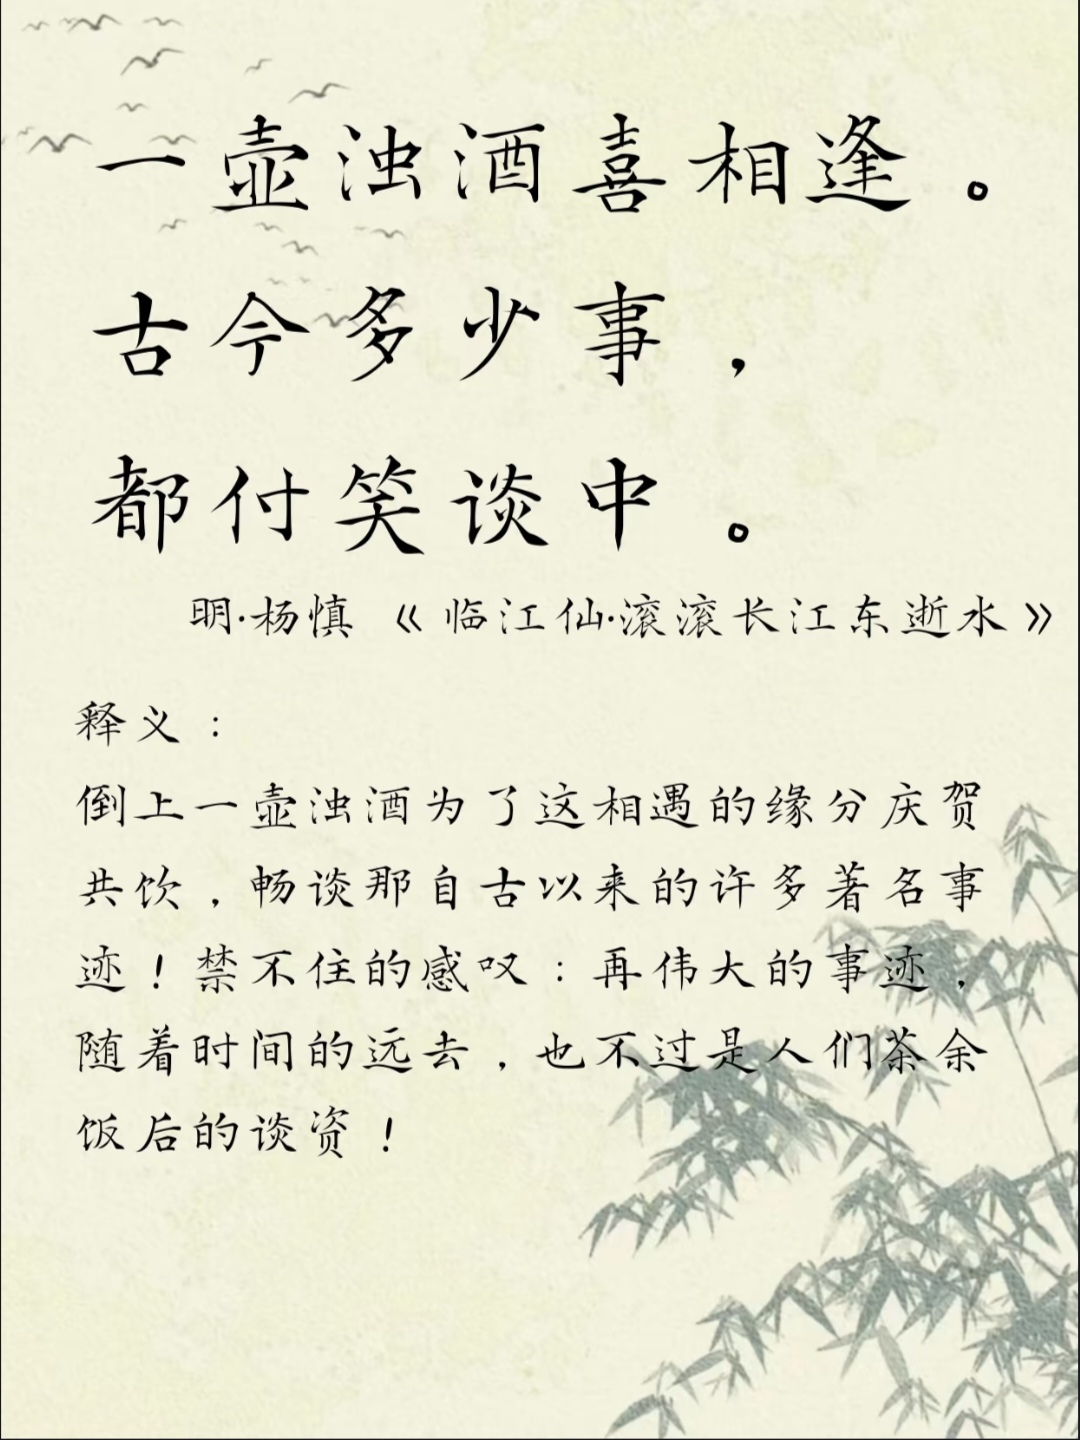 一壶浊酒喜相逢。
古今多少事，
都付笑谈中。
明·杨慎《临江仙·滚滚长江东逝水》
释义：
倒上一壶浊酒为了这相遇的缘分庆贺
共饮，畅谈那自古以来的许多著名事
迹！禁不住的感叹：再伟大的事迹，
随着时间的远去，也不过是人们茶余
饭后的谈资！